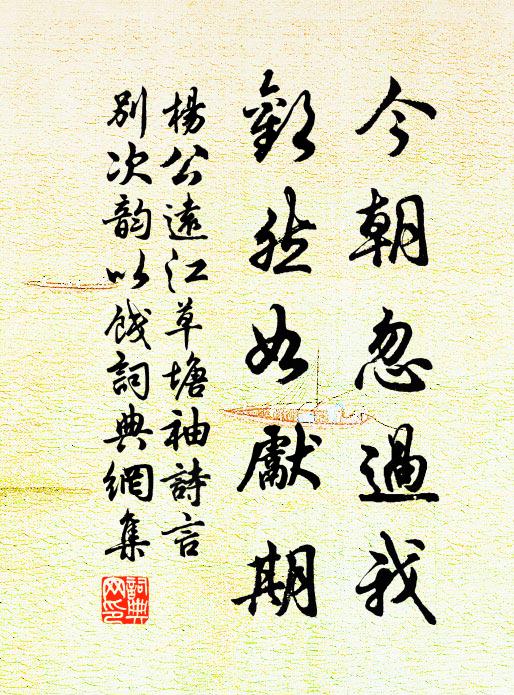 今朝忽過我
歡然如獻期
楊公遠江草塘袖詩言
別次韵以餞詞典網集
詞典
网印